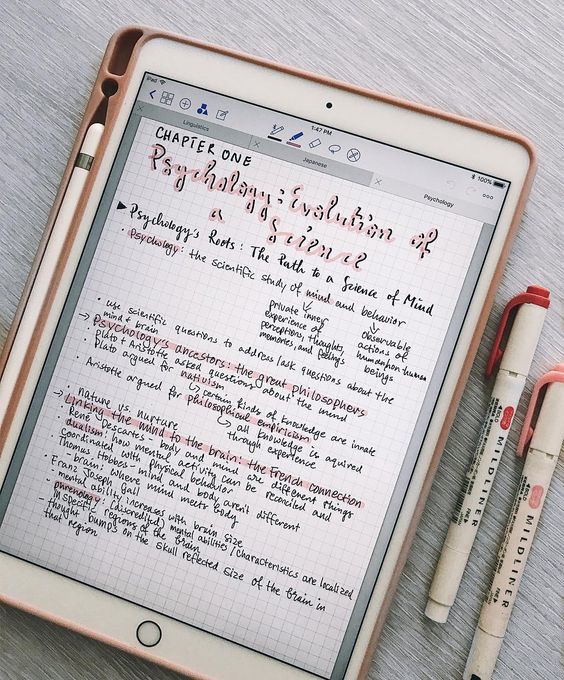 iPad
1:47 PM
100%
Linguistics
Japanese
Psychology
CHAPTER ONE
Psychology: Evolution of
a Science
▶ Psychology's Roots: The Path to a Science of Mind
• Psychology: the scientific study of mind and behavior
private inner
experience of
perceptions, thoughts,
memories, and feelings
observable
actions of
human + nonhuman
beings
• use scientific questions to address/ask questions about the
mind + brain
→ Psychology's ancestors: the great philosophers
• Plato + Aristotle asked questions about the mind
• Plato argued for nativism
↳ certain kinds of knowledge are innate
• Aristotle argued for philosophical empiricism
↳ all knowledge is aquired
through experience
• nature vs. nurture
→ Linking the mind to the brain: the French connection
• René Descartes - body and mind are different things
dualism: how mental activity can be reconciled and
coordinated with physical behavior
• Thomas Hobbes - mind and body aren't different
↳ brain: where mind meets body
• Franz Joseph Gall
- mental ability increases with brain size
- phrenology: (discredited) mental abilities/characteristics are localized
in specific regions of the brain
- thought bumps on the skull reflected size of the brain in
that region
MILDLINER
MILDLINER